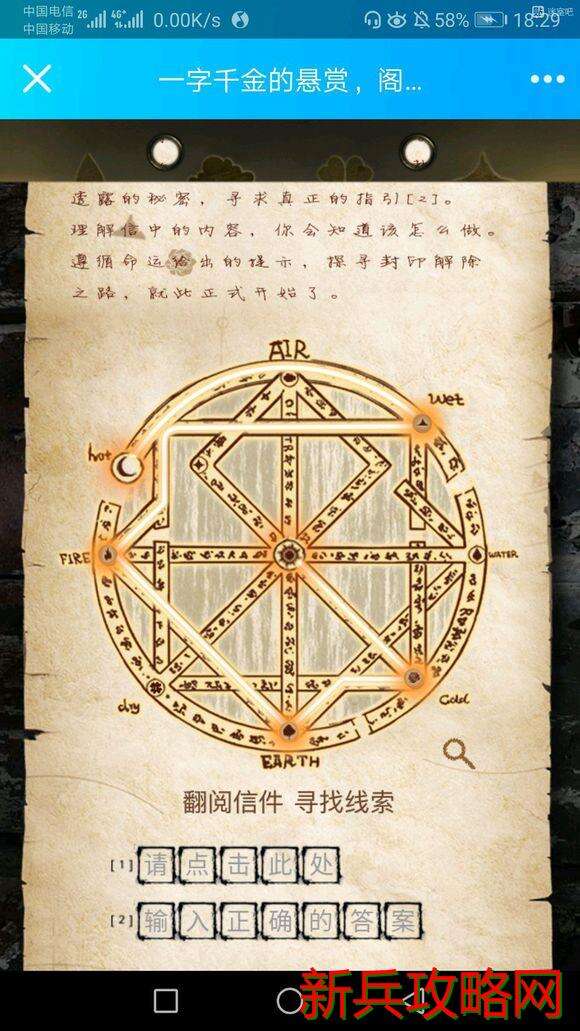 中国电信
中国移动
2G 4G 0.00K/s 58% 18:29
迷窟吧
一字千金的悬赏，阁...
透露的秘密，寻求真正的指引[2]。
理解信中的内容，你会知道该怎么做。
遵循命运给出的提示，探寻封印解除
之路，就此正式开始了。
AIR
wet
hot
FIRE
WATER
dry
Cold
EARTH
翻阅信件 寻找线索
[1]请点击此处
[2]输入正确的答案
新兵攻略网